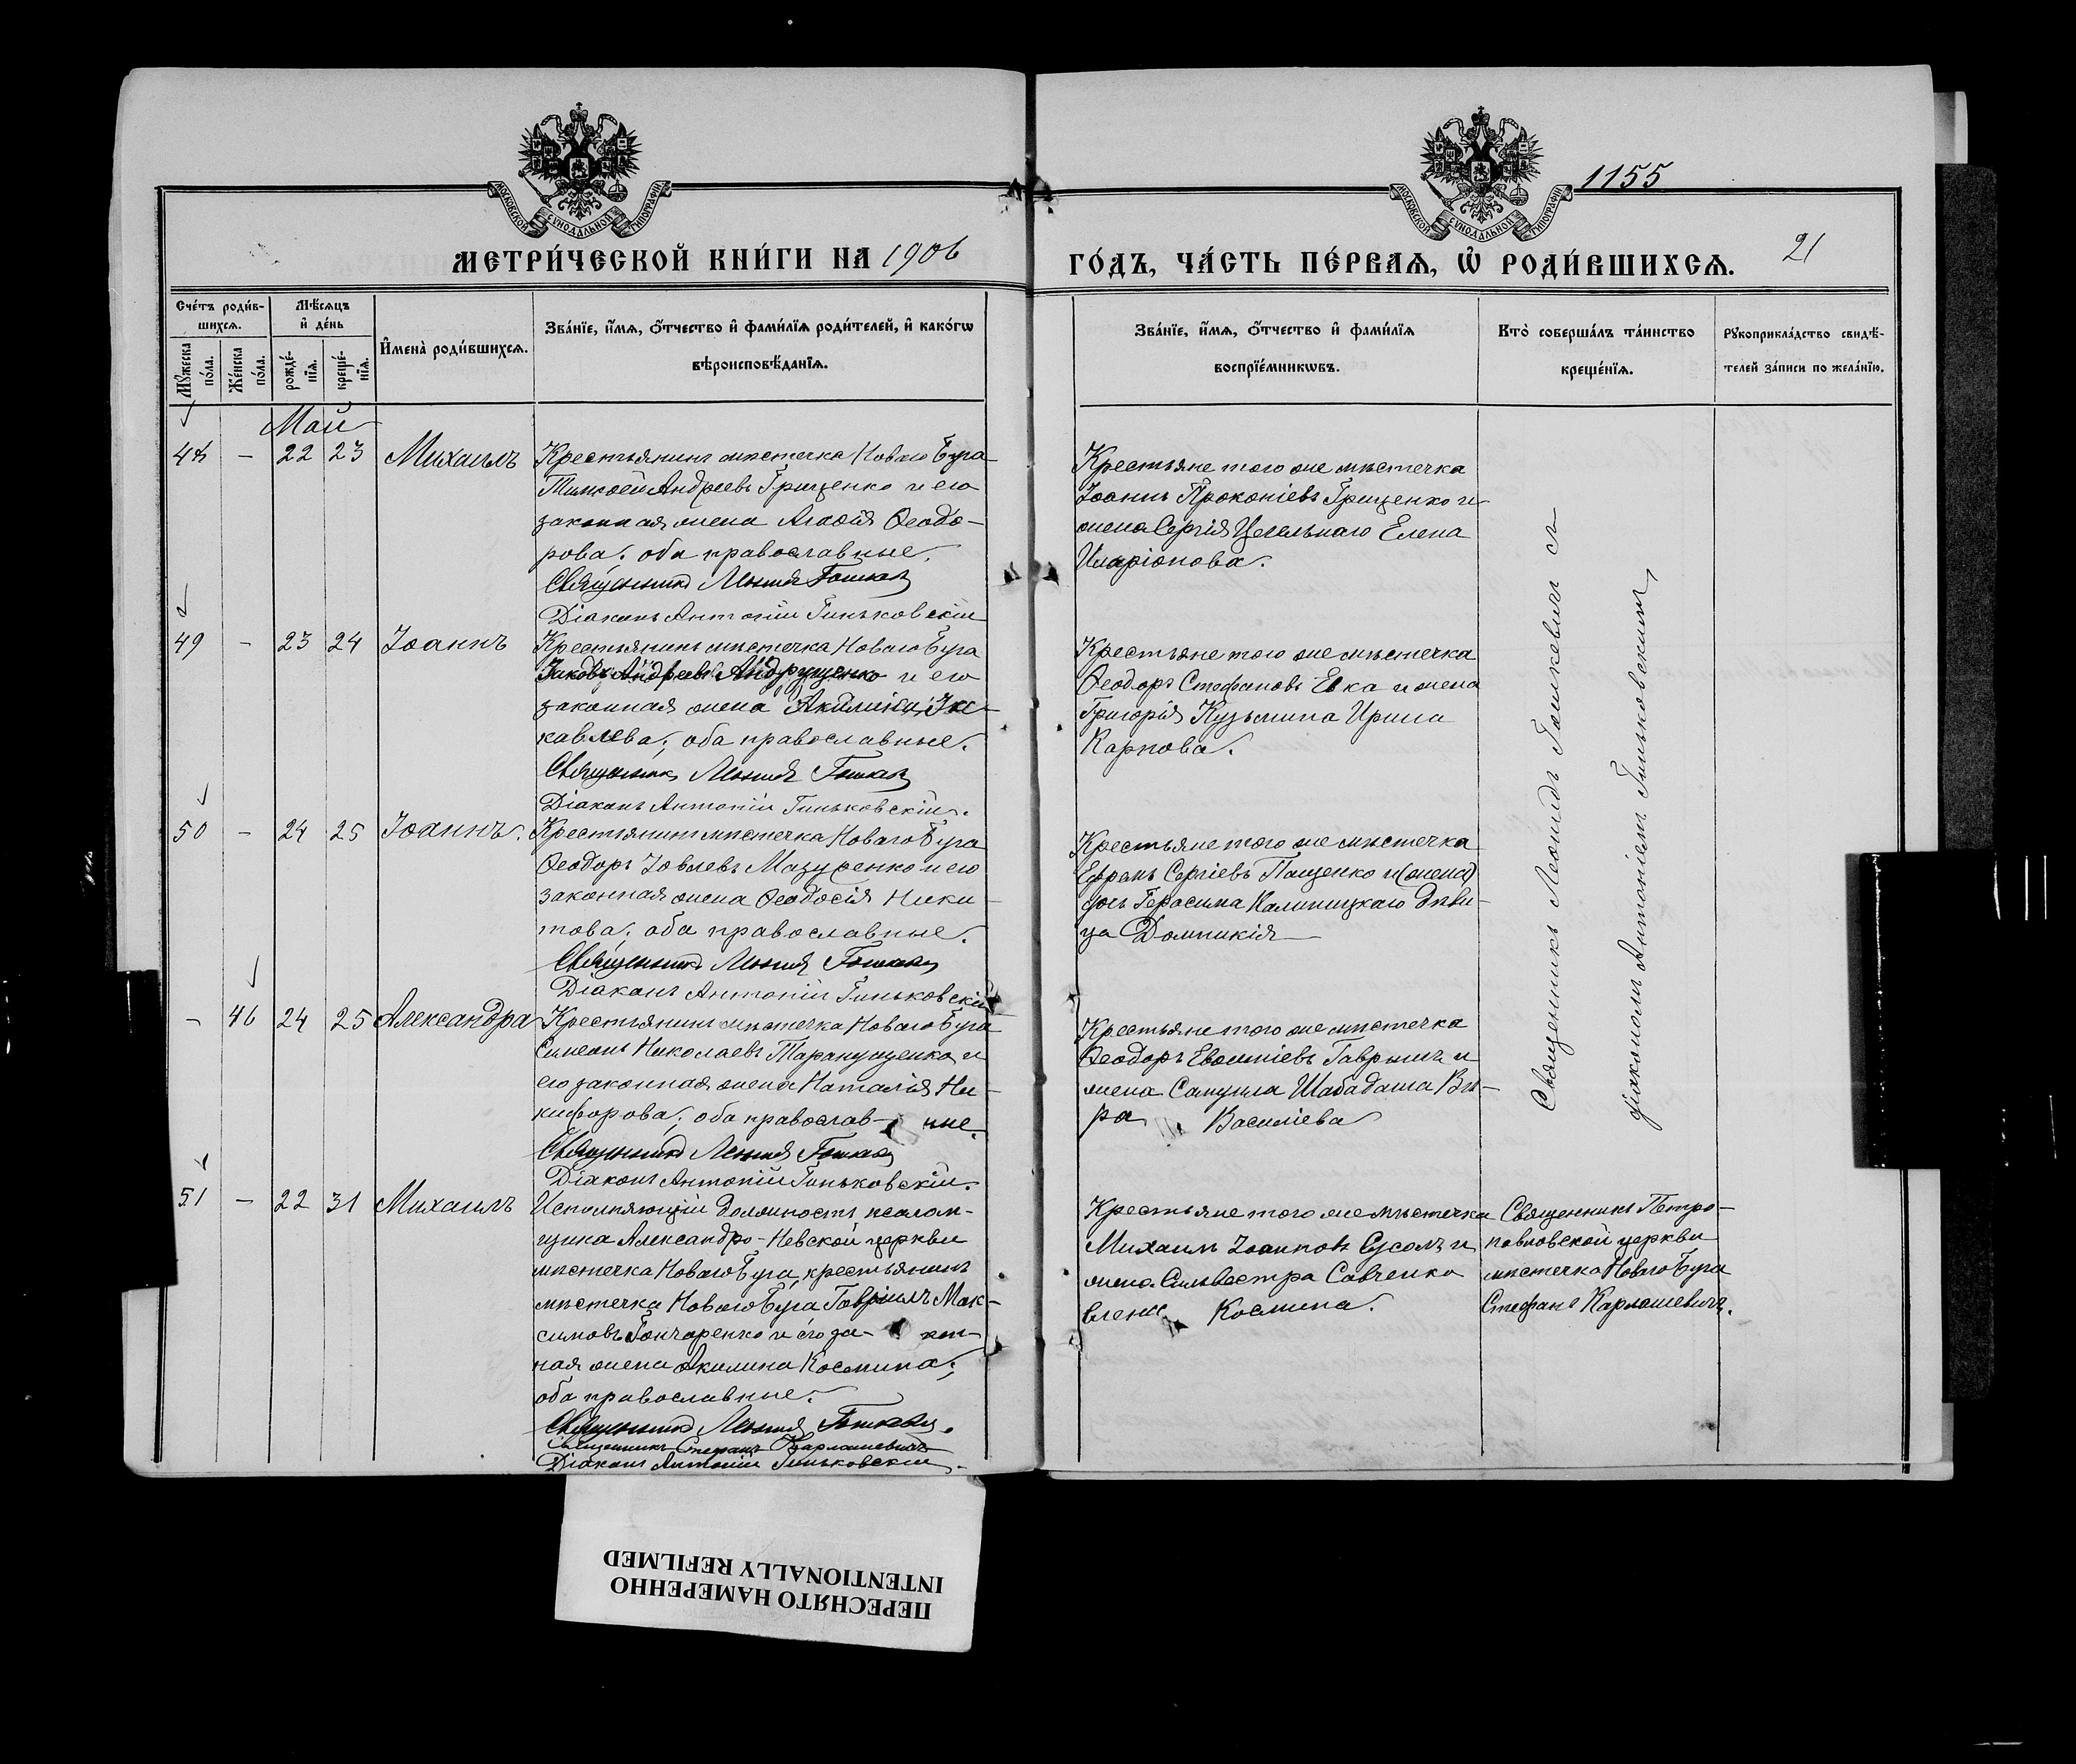 1155
МОСКОВСКОЙ СѴНОДАЛЬНОЙ ТИПОГРАФІИ
МОСКОВСКОЙ СѴНОДАЛЬНОЙ ТИПОГРАФІИ
МЕТРИ́ЧЕСКОЙ КНИ́ГИ НА 1906
ГО́ДЪ, ЧА́СТЬ ПЕ́РВАѦ, Ѡ҆ РОДИ́ВШИХСѦ.
21
Сче́тъ роди́в-
шихсѧ.
Мꙋ́жеска
по́ла.
Же́нска
по́ла.
Мѣ́сѧцъ
и҆ де́нь
рожде́-
нїѧ.
креще́-
нїѧ.
И҆мена̀ роди́вшихсѧ.
Зва́нїе, и҆́мѧ, ѻ҆́тчество и҆ фами́лїѧ роди́телей, и҆ како́гѡ
вѣроисповѣ́данїѧ.
Зва́нїе, и҆́мѧ, ѻ҆́тчество и҆ фами́лїѧ
воспрїе́мникѡвъ.
Кто̀ соверша́лъ та́инство
креще́нїѧ.
Рꙋкоприкла́дство свидѣ́-
телей за́писи по жела́нїю.
Май
48 - 22 23 Михаилъ
Крестьянинъ мѣстечка Новаго Буга
Тимоѳей Андреевъ Грищенко и его
законная жена Агаѳія Ѳеодо-
рова; оба православные.
Священникъ Леонидъ
Діаконъ Антоній Гиньковскій
Крестьяне того же мѣстечка
Іоаннъ Прокопіевъ Грищенко и
жена Сергія Цегельнаго Елена
Иларіонова.
49 - 23 24 Іоаннъ
Крестьянинъ мѣстечка Новаго Буга
Іаковъ Андреевъ Андрущенко и его
законная жена Акилина Іа-
кавлева; оба православные.
Священникъ Леонидъ
Діаконъ Антоній Гиньковскій.
Крестьяне того же мѣстечка
Ѳеодоръ Стефановъ Евка и жена
Григорія Кузьмина Ирина
Карпова.
50 - 24 25 Іоаннъ.
Крестьянинъ мѣстечка Новаго Буга
Ѳеодоръ Іовлевъ Мазуренко и его
законная жена Ѳеодосія Ники-
това; оба православные.
Священникъ Леонидъ
Діаконъ Антоній Гиньковскій
Крестьяне того же мѣстечка
Ефремъ Сергіевъ Пащенко и (жена)
дочь Герасима Калиницкаго дѣви-
ца Домникія
- 46 24 25 Александра
Крестьянинъ мѣстечка Новаго Буга
Симеонъ Николаевъ Таранущенко и
его законная жена Наталія Ни-
кифорова; оба православ- ные.
Священникъ Леонидъ
Діаконъ Антоній Гиньковскій.
Крестьяне того же мѣстечка
Ѳеодоръ Евѳиміевъ и
жена Самуила Шабадаша Вѣ-
ра Василіева
Священникъ Леонидъ съ
діакономъ Антоніемъ Гиньковскимъ
51 - 22 31 Михаилъ
Исполняющій должность псалом-
щика Александро-Невской церкви
мѣстечка Новаго Буга, крестьянинъ
мѣстечка Новаго Буга Гавріилъ Мак-
симовъ Гончаренко и его за- кон-
ная жена Акилина Космина;
оба православные.
Священникъ Леонидъ
Священникъ Стефанъ Карлашевичъ
Діаконъ Антоній Гиньковскій.
Крестьяне того же мѣстечка
Михаилъ Іоанновъ и
жена Сильвестра Савченко
Космина.
Священникъ Петро-
павловской церкви
мѣстечка Новаго Буга
Стефанъ Карлашевичъ.
ПЕРЕСНЯТО НАМЕРЕННО
INTENTIONALLY REFILMED